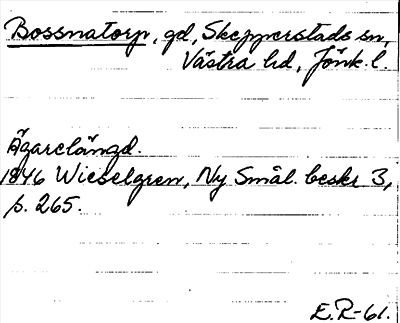 Bossnatorp, gd, Skepperstads sn,
Västra hd, Jönk. l.
Ägarelängd.
1846 Wieselgren, Ny Smål. beskr 3,
p. 265.
E.R-61.